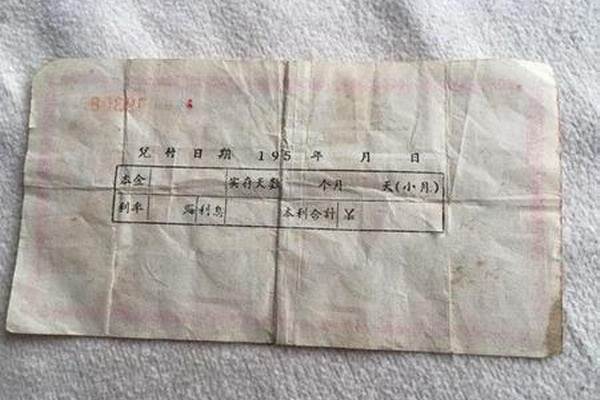 兌付日期 195 年 月 日
本金 实存天数 个月 天(小月)
利率 利息 本利合計 ¥